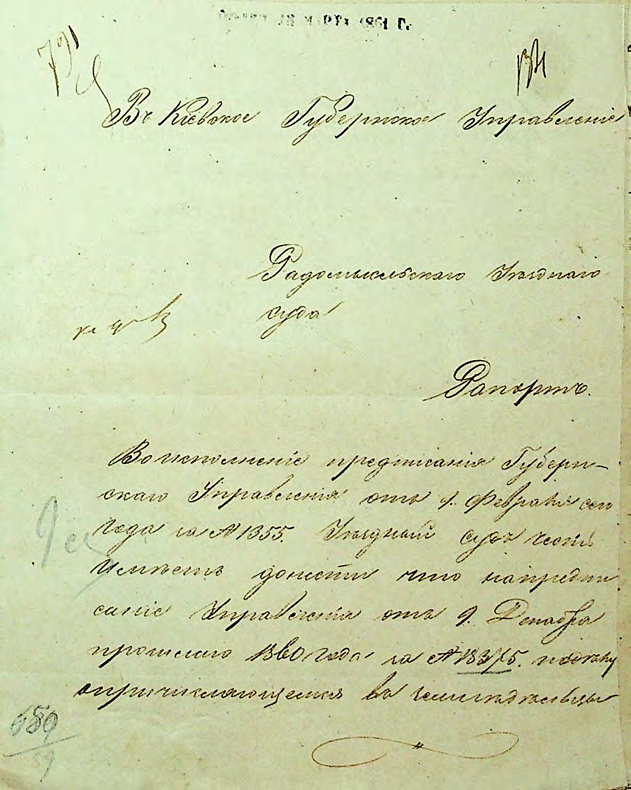 МАРТА 1861 Г.
791
134
Въ Кіевское Губернское Управленіе
Радомысльскаго Уѣзднаго
суда
Рапортъ.
Во исполненіе предписанія Губерн-
скаго Управленія отъ 9. Февраля сего
года за № 1355. Уѣздный судъ честь
имѣетъ донести что на предпи
саніе Управленія отъ 9. Декабря
прошлаго 1860 года за №
о причисляющемся въ
689
59